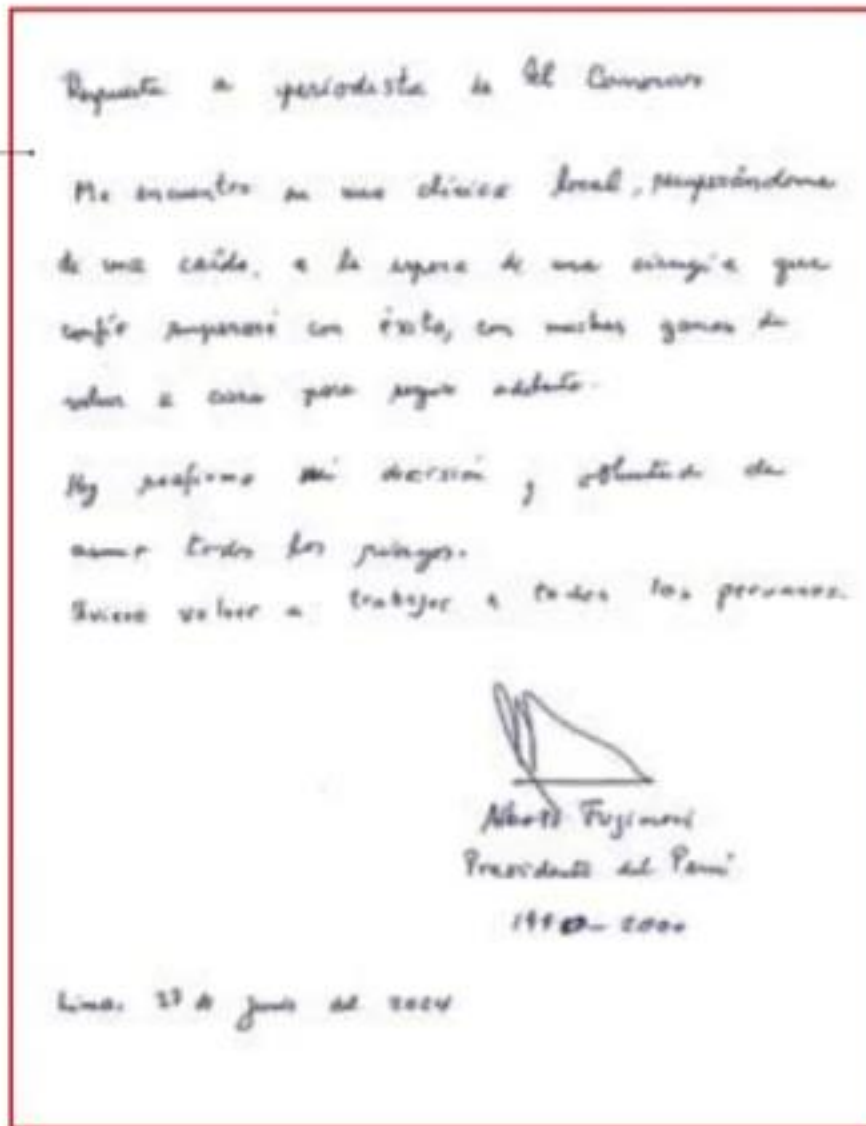 Respuesta a periodista de El Comercio
Me encuentro en una clínica local, recuperándome
de una caída, a la espera de una cirugía que
confío superaré con éxito, con muchas ganas de
volver a casa para seguir adelante.
Hoy reafirmo mi decisión y voluntad de
asumir todos los riesgos.
Quiero volver a trabajar a todos los peruanos.
Alberto Fujimori
Presidente del Perú
1990-2000
Lima, de junio del 2024